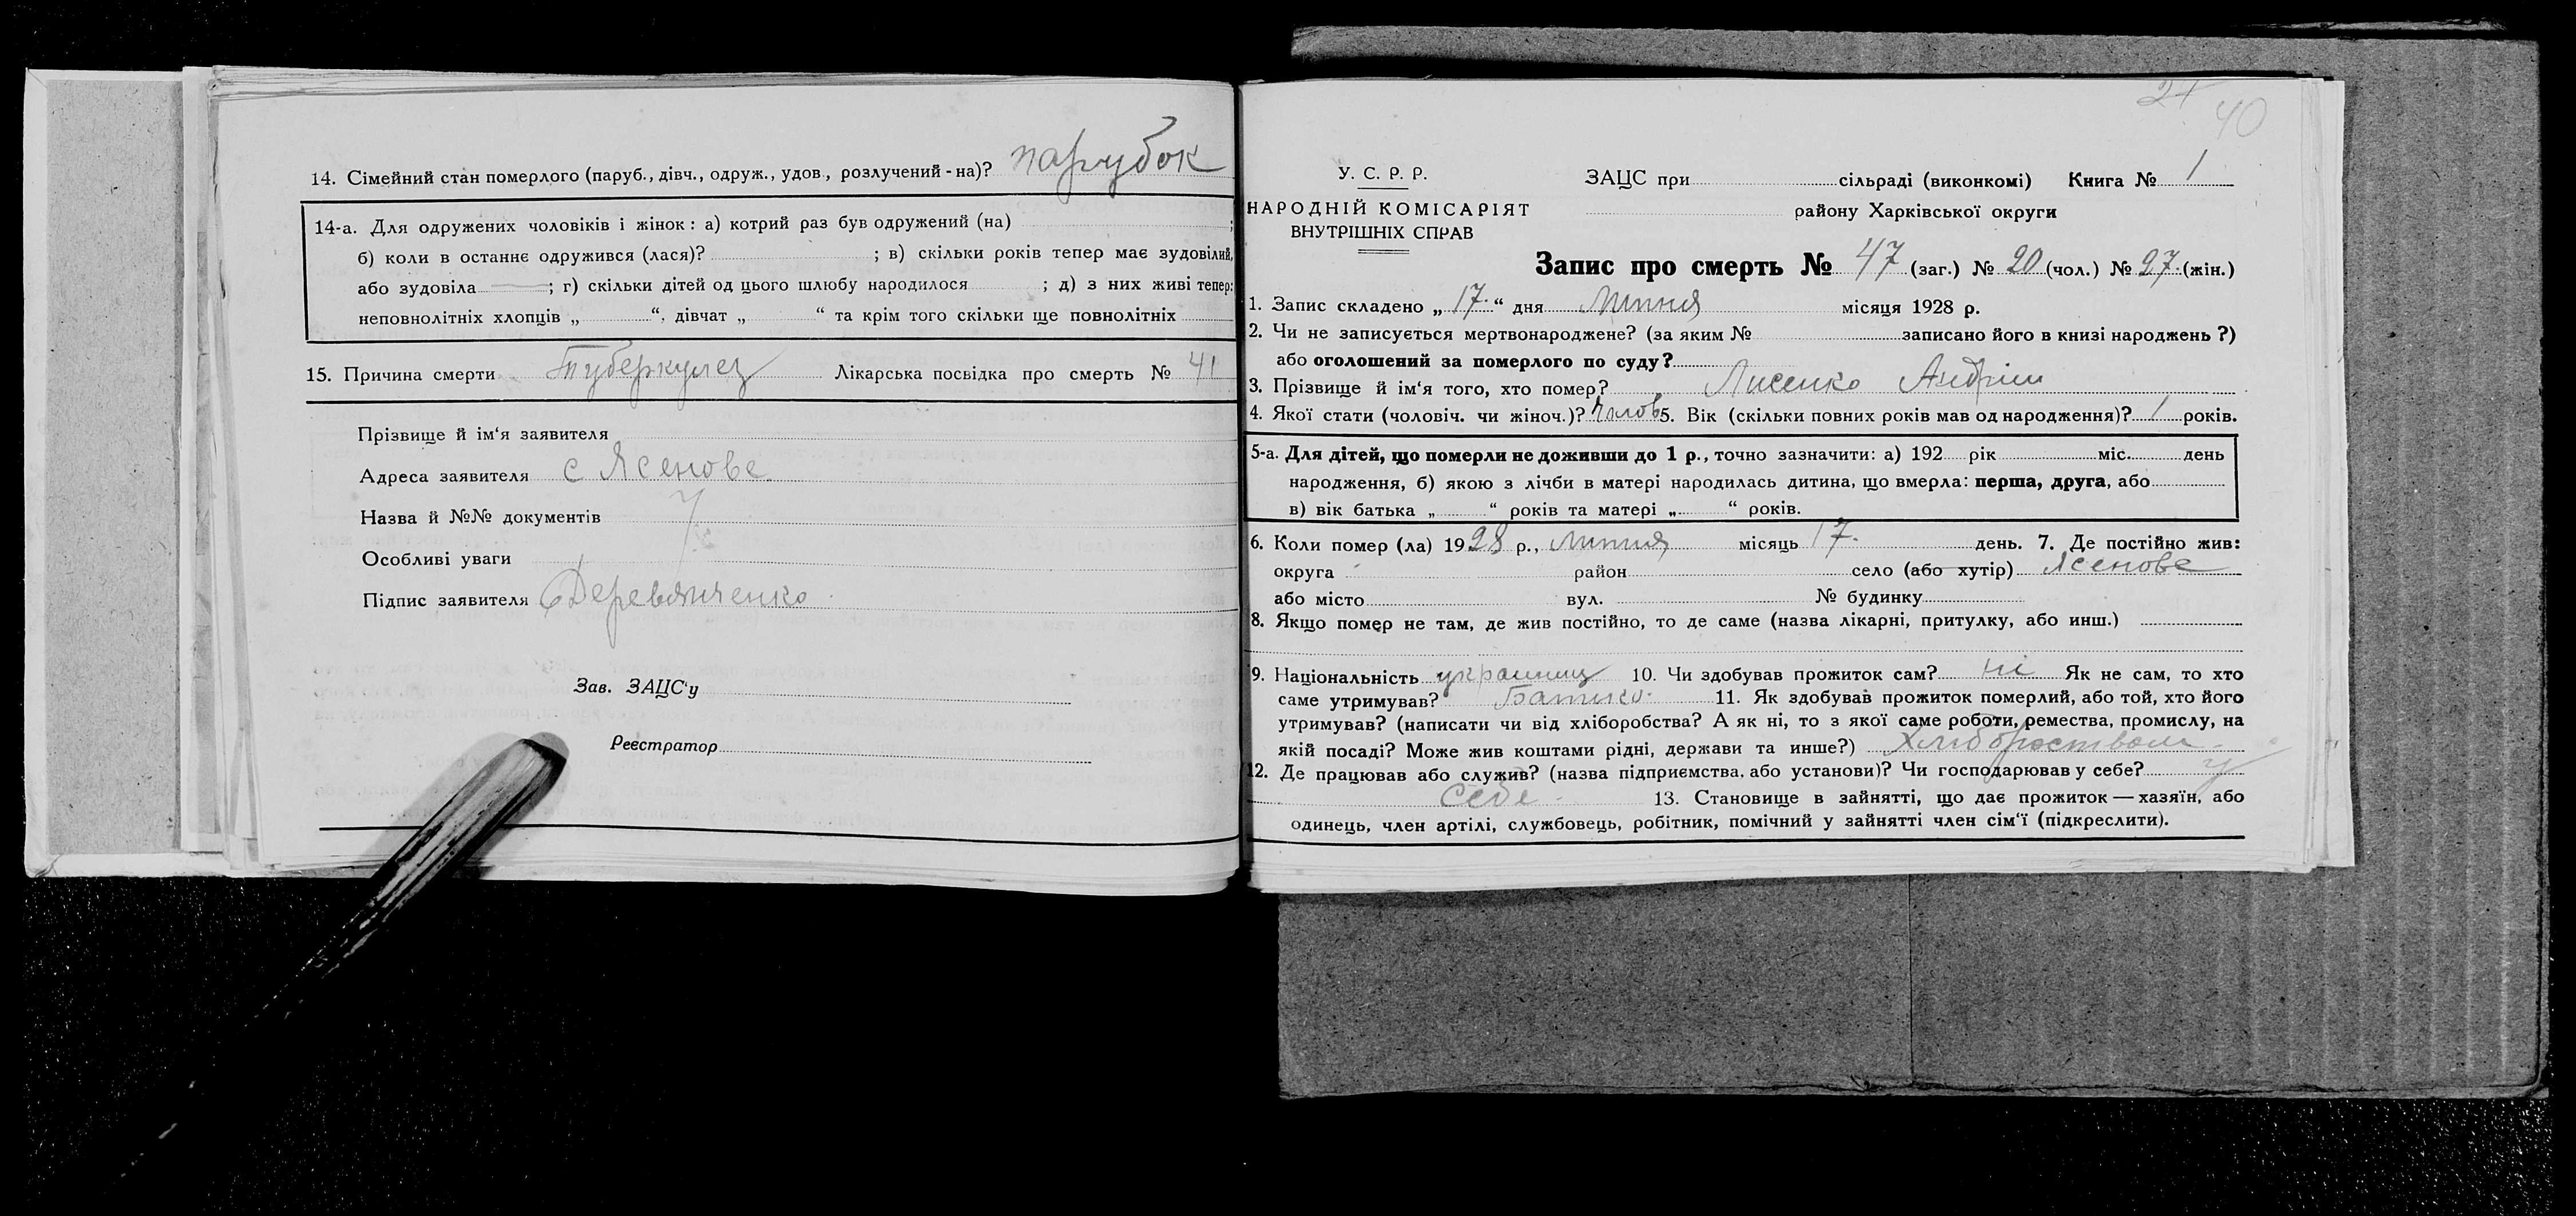 14. Сімейний стан померлого (паруб., дівч., одруж., удов., розлучений - на)? парубок
14-а. Для одружених чоловіків і жінок: а) котрий раз був одружений (на) ;
б) коли в останнє одружився (лася)? ; в) скільки років тепер має зудовілий,
або зудовіла ; г) скільки дітей од цього шлюбу народилося ; д) з них живі тепер:
неповнолітніх хлопців „ “, дівчат „ “ та крім того скільки ще повнолітніх
15. Причина смерти Туберкулез Лікарська посьвідка про смерть № 41
Прізвище й ім‘я заявителя
Адреса заявителя с Ясенове
Назва й №№ документів
Особливі уваги
Підпис заявителя Деревянченко
Зав. ЗАЦС‘у
Реєстратор
21 40
У. С. Р. Р.
НАРОДНІЙ КОМІСАРІЯТ
ВНУТРІШНІХ СПРАВ
ЗАЦС при сільраді (виконкомі) Книга № 1
району Харківської округи
Запис про смерть № 47 (заг.) № 20 (чол.) № 27 (жін.)
1. Запис складено „17“ дня липня місяця 1928 р.
2. Чи не записується мертвонароджене? (за яким № записано його в книзі народжень ?)
або оголошений за померлого по суду?
3. Прізвище й ім‘я того, хто помер? Лисенко Андрій
4. Якої стати (чоловіч. чи жіноч.)? чолов 5. Вік (скільки повних років мав од народження)? 1 років.
5-а. Для дітей, що померли не доживши до 1 р., точно зазначити: а) 192 рік міс. день
народження, б) якою з лічби в матері народилась дитина, що вмерла: перша, друга, або
в) вік батька „ “ років та матері „ “ років.
6. Коли помер (ла) 1928 р., липня місяць 17. день. 7. Де постійно жив:
округа район село (або хутір) Ясенове
або місто вул. № будинку
8. Якщо помер не там, де жив постійно, то де саме (назва лікарні, притулку, або инш.)
9. Національність українець 10. Чи здобував прожиток сам? ні Як не сам, то хто
саме утримував? Батько 11. Як здобував прожиток померлий, або той, хто його
утримував? (написати чи від хліборобства? А як ні, то з якої саме роботи, ремества, промислу, на
якій посаді? Може жив коштами рідні, держави та инше?) Хліборобством
12. Де працював або служив? (назва підприємства, або установи)? Чи господарював у себе? у
себе 13. Становище в зайнятті, що дає прожиток — хазяїн, або
одинець, член артілі, службовець, робітник, помічний у зайнятті член сім‘ї (підкреслити).